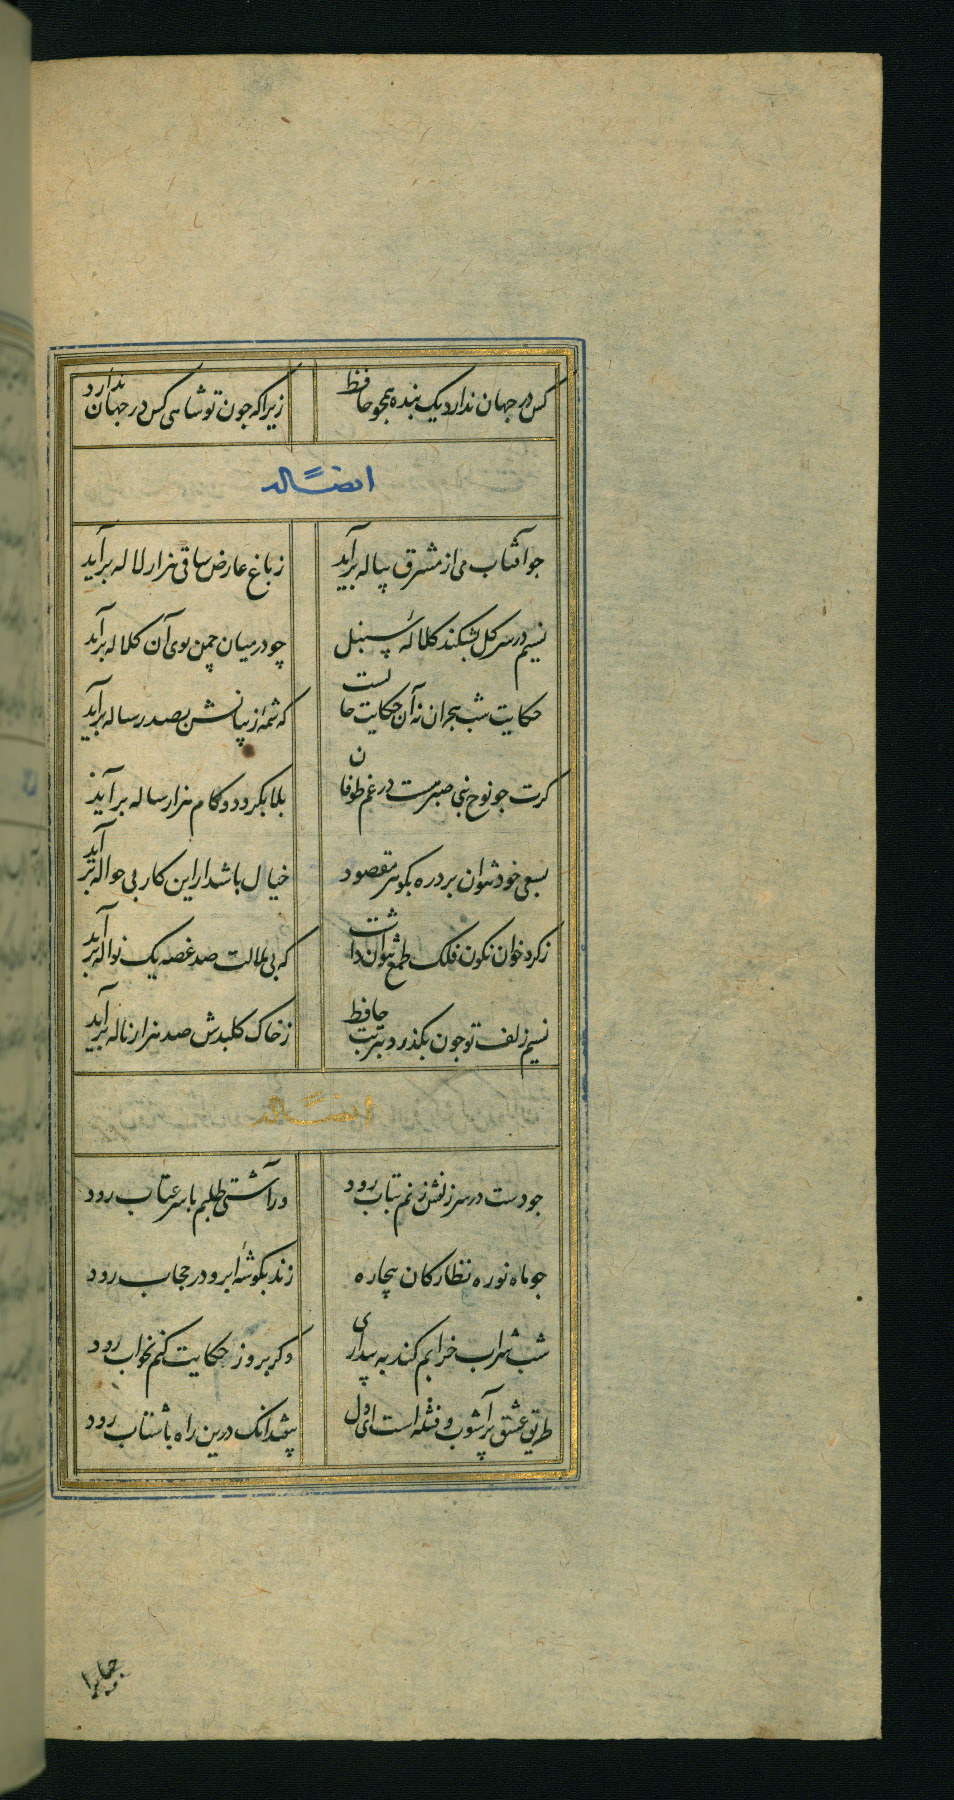 کس در جهان ندارد یک بنده همچو حافظ زیرا که چون تو شاهی کس در جهان ندارد
ایضاً له
چو آفتاب می از مشرق پیاله برآید ز باغ عارض ساقی هزار لاله برآید
نسیم در سر گل بشکند کلالهٔ سنبل چو در میان چمن بوی آن کلاله برآید
حکایت شب هجران نه آن حکایت حالست که شمهٔ ز بیانش بصد رساله برآید
گرت چو نوح نبی صبر هست در غم طوفان بلا بگردد و کام هزار ساله برآید
بسعی خود نتوان برد ره بگوهر مقصود خیال باشد این کار بی حواله برآید
ز گرد خوان نگون فلک طمع نتوان داشت که بی ملالت صد غصه یک نواله برآید
نسیم زلف تو چون بگذرد بتربت حافظ ز خاک کلبدش صد هزار ناله برآید
ایضاً له
چو دست در سر زلفش زنم بتاب رود ور آشتی طلبم با سر عتاب رود
چو ماه نو ره نظارگان بیچاره زند بگوشهٔ ابرو و در حجاب رود
شب شراب خرابم کند به بیداری وگر بروز حکایت کنم بخواب رود
طریق عشق پر آشوب و فتنه است ای دل بیفتد آنک درین راه با شتاب رود